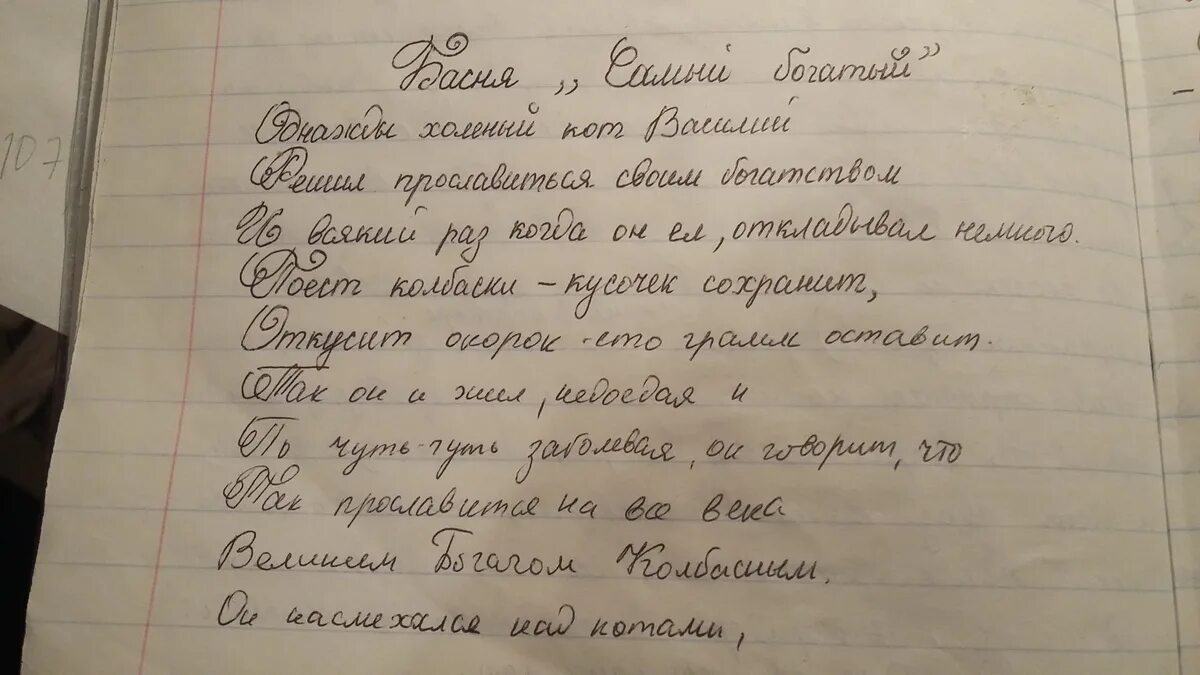 Басня ,, Самый богатый"
Однажды холеный кот Василий
Решил прославиться своим богатством
И всякий раз когда он ел, откладывал немного.
Поест колбаски - кусочек сохранит,
Откусит окорок - сто грамм оставит.
Так он и жил, недоедая и
По чуть-чуть заболевая, он говорит, что
Так прославится на все века
Великим Богачом Колбасным.
Он насмехался над котами,
107